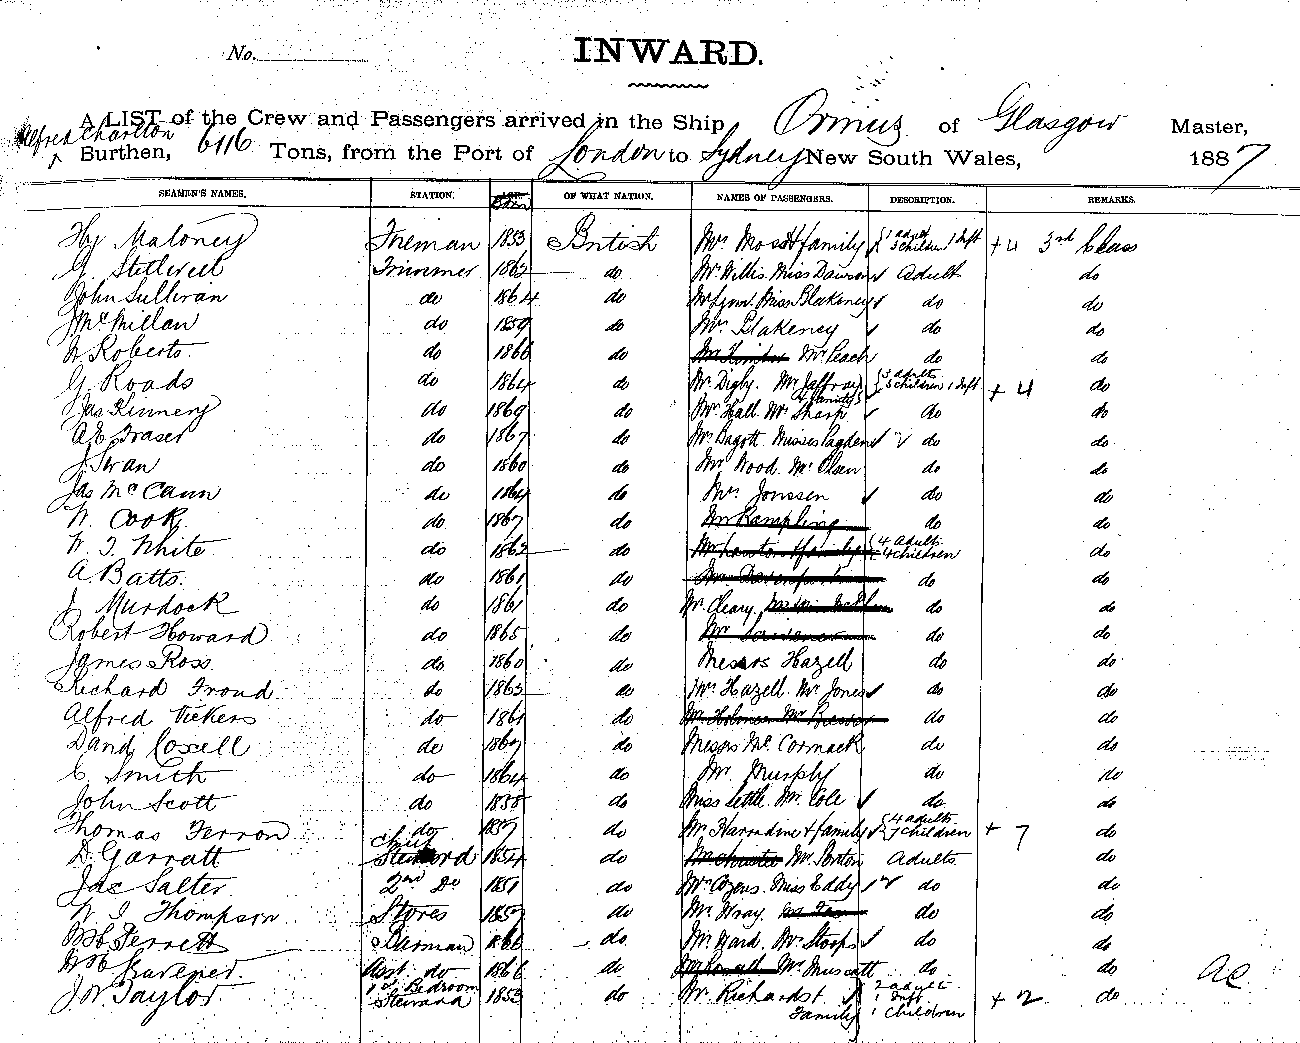 No.
INWARD.
A LIST of the Crew and Passengers arrived in the Ship Ormuz of Glasgow Master,
Alfred Charlton
Burthen, 6116 Tons, from the Port of London to Sydney New South Wales, 1887
SEAMEN'S NAMES. STATION. AGE. OF WHAT NATION. NAMES OF PASSENGERS. DESCRIPTION. REMARKS.
Hy Maloney Fireman 1853 British Mrs Moss & family 1 adult 3 children 1 Inft + 4 3rd Class
G. Stillwell Trimmer 1862 do Mr Willis. Miss Dawson Adult do
John Sullivan do 1864 do Mr Lynn. Miss Blakeney do do
J McMillan do 1859 do Mrs Blakeney do do
Roberts do 1866 do Mr Leach do do
G. Roads do 1864 do Mr Digby. Mr Jaffray & family 3 adults 3 children 1 Inft + 4 do
Jas Kinnery do 1869 do Mr Hall. Mr Sharp do do
A E Fraser do 1867 do Mr Bagott. Misses Pagden do do
J. Swan do 1860 do Mr Wood. Mr Olsen do do
Jas McCann do 1864 do Mrs Jonssen do do
W. Cook do 1867 do Mr Rampling do do
W. T. White do 1862 do 4 adults 4 children do
A. Batts. do 1861 do do do
J. Murdock do 1861 do Mr Cleary. do do
Robert Howard do 1865 do Mr Scrivener do do
James Ross. do 1860 do Messrs Hazell do do
Richard Froud do 1863 do Mrs Hazell. Mr Jones do do
Alfred Vickers do 1861 do do do
David Coxell do do Messrs McCormack do do
C. Smith do 1864 do Mr. Murphy do do
John Scott do 1858 do Miss Little. Mr. Cole do do
Thomas Ferron do 1857 do Mr Harradine & family 4 adults 7 children + 7 do
D. Garratt Chief Steward 1854 do Mr Porton Adults do
Jas Salter 2nd Do 1851 do Mr Cozens. Miss Eddy do do
W. J. Thompson Stores 1857 do Mr Wray. do do
Perrett Barman 1866 do Mr Ward. Mr Stoops do do
Asst. do 1866 do Mr Muscatt do do
J. W. Taylor 1st Bedroom Steward 1853 do Mr Richards & Family 2 adults 1 Inft 1 Children + 2 do